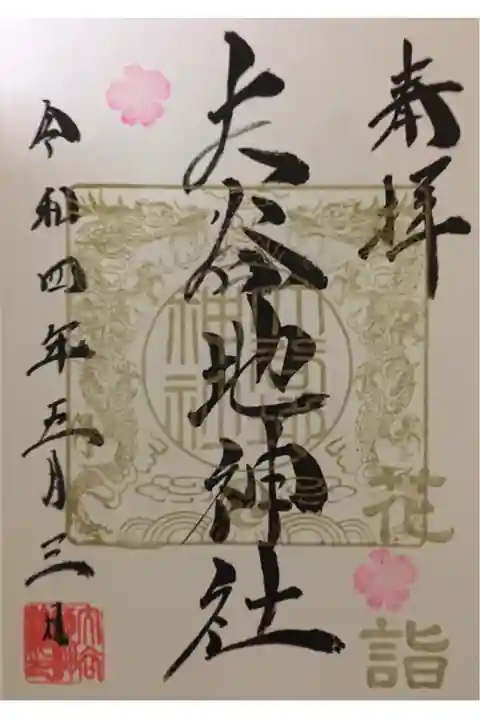 奉拝
花詣
大谷地神社
神社
令和四年五月三日